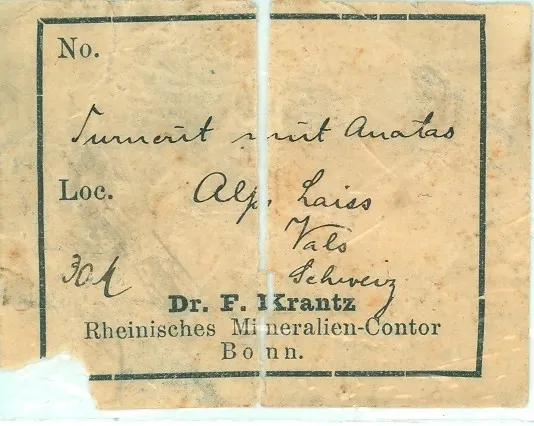 No.
Turnerit mit Anatas
Loc. Alp. Laiss
Vals
Schweiz
30
Dr. F. Krantz
Rheinisches Mineralien-Contor
Bonn.